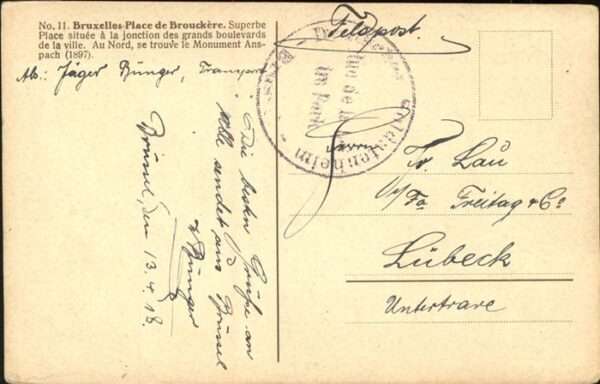 No. 11. Bruxelles-Place de Brouckère. Superbe
Place située à la jonction des grands boulevards
de la ville. Au Nord, se trouve le Monument Ans-
pach (1897).
Feldpost.
Abs: Jäger Bünger, Transport
Soldatenheim
Herrn
Fr. Lau
Fa Freitag & Co
Lübeck
Untertrave
Die besten Grüße an
Alle sendet aus Brüssel
Bünger
Brüssel, den 13.4.18.